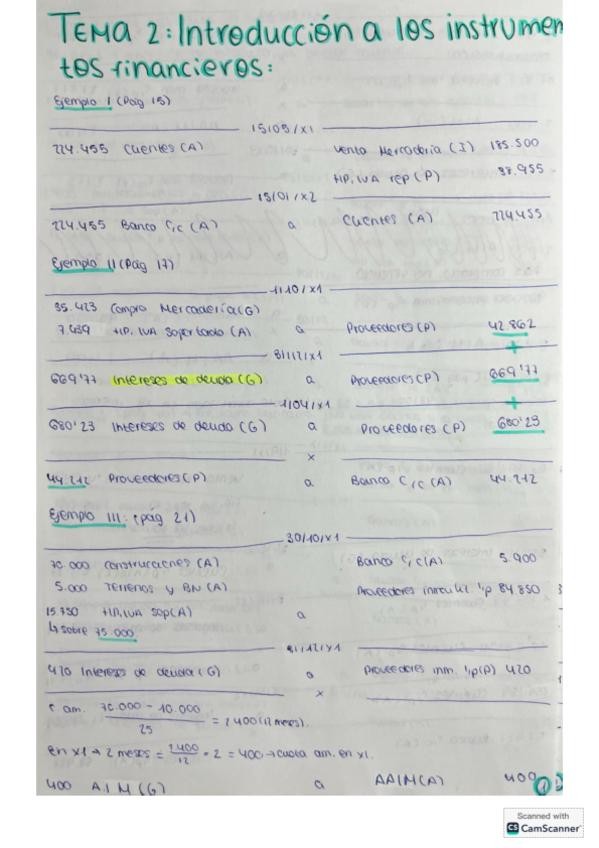 TEMA 2: Introducción a los instrumen
tos financieros:
Ejemplo I (Pág 15)
15/03/x1
224.455 Clientes (A) Venta Mercadería (I) 185.500
HP, IVA rep (P) 38.955
15/01/x2
224.455 Banco C/c (A) a Clientes (A) 224455
Ejemplo II (Pág 17)
1/10/x1
35.423 Compra Mercadería (G)
7.439 HP, IVA Soportado (A) a Proveedores (P) 42.862
31/12/x1 +
669'77 Intereses de deuda (G) a Proveedores (P) 669'77
1/04/x1 +
680'23 Intereses de deuda (G) a Proveedores (P) 680'23
x
44.212 Proveedores (P) a Banco C/c (A) 44.212
Ejemplo III: (pág 21)
30/10/x1
70.000 Construcciones (A) Banco C/c (A) 5.900
5.000 Terrenos y BN (A) Proveedores inmovil. l/p 84.850
15750 HP, IVA sop (A) a
↳ sobre 75.000
31/12/x1
420 Intereses de deuda (G) a Proveedores inm. l/p (P) 420
x
c am. 70.000 - 10.000
25 = 2400 (12 meses).
en x1 → 2 meses = 2400/12 · 2 = 400 → cuota am. en x1.
400 A I M (G) a AAIM (A) 400
1
Scanned with
CS CamScanner